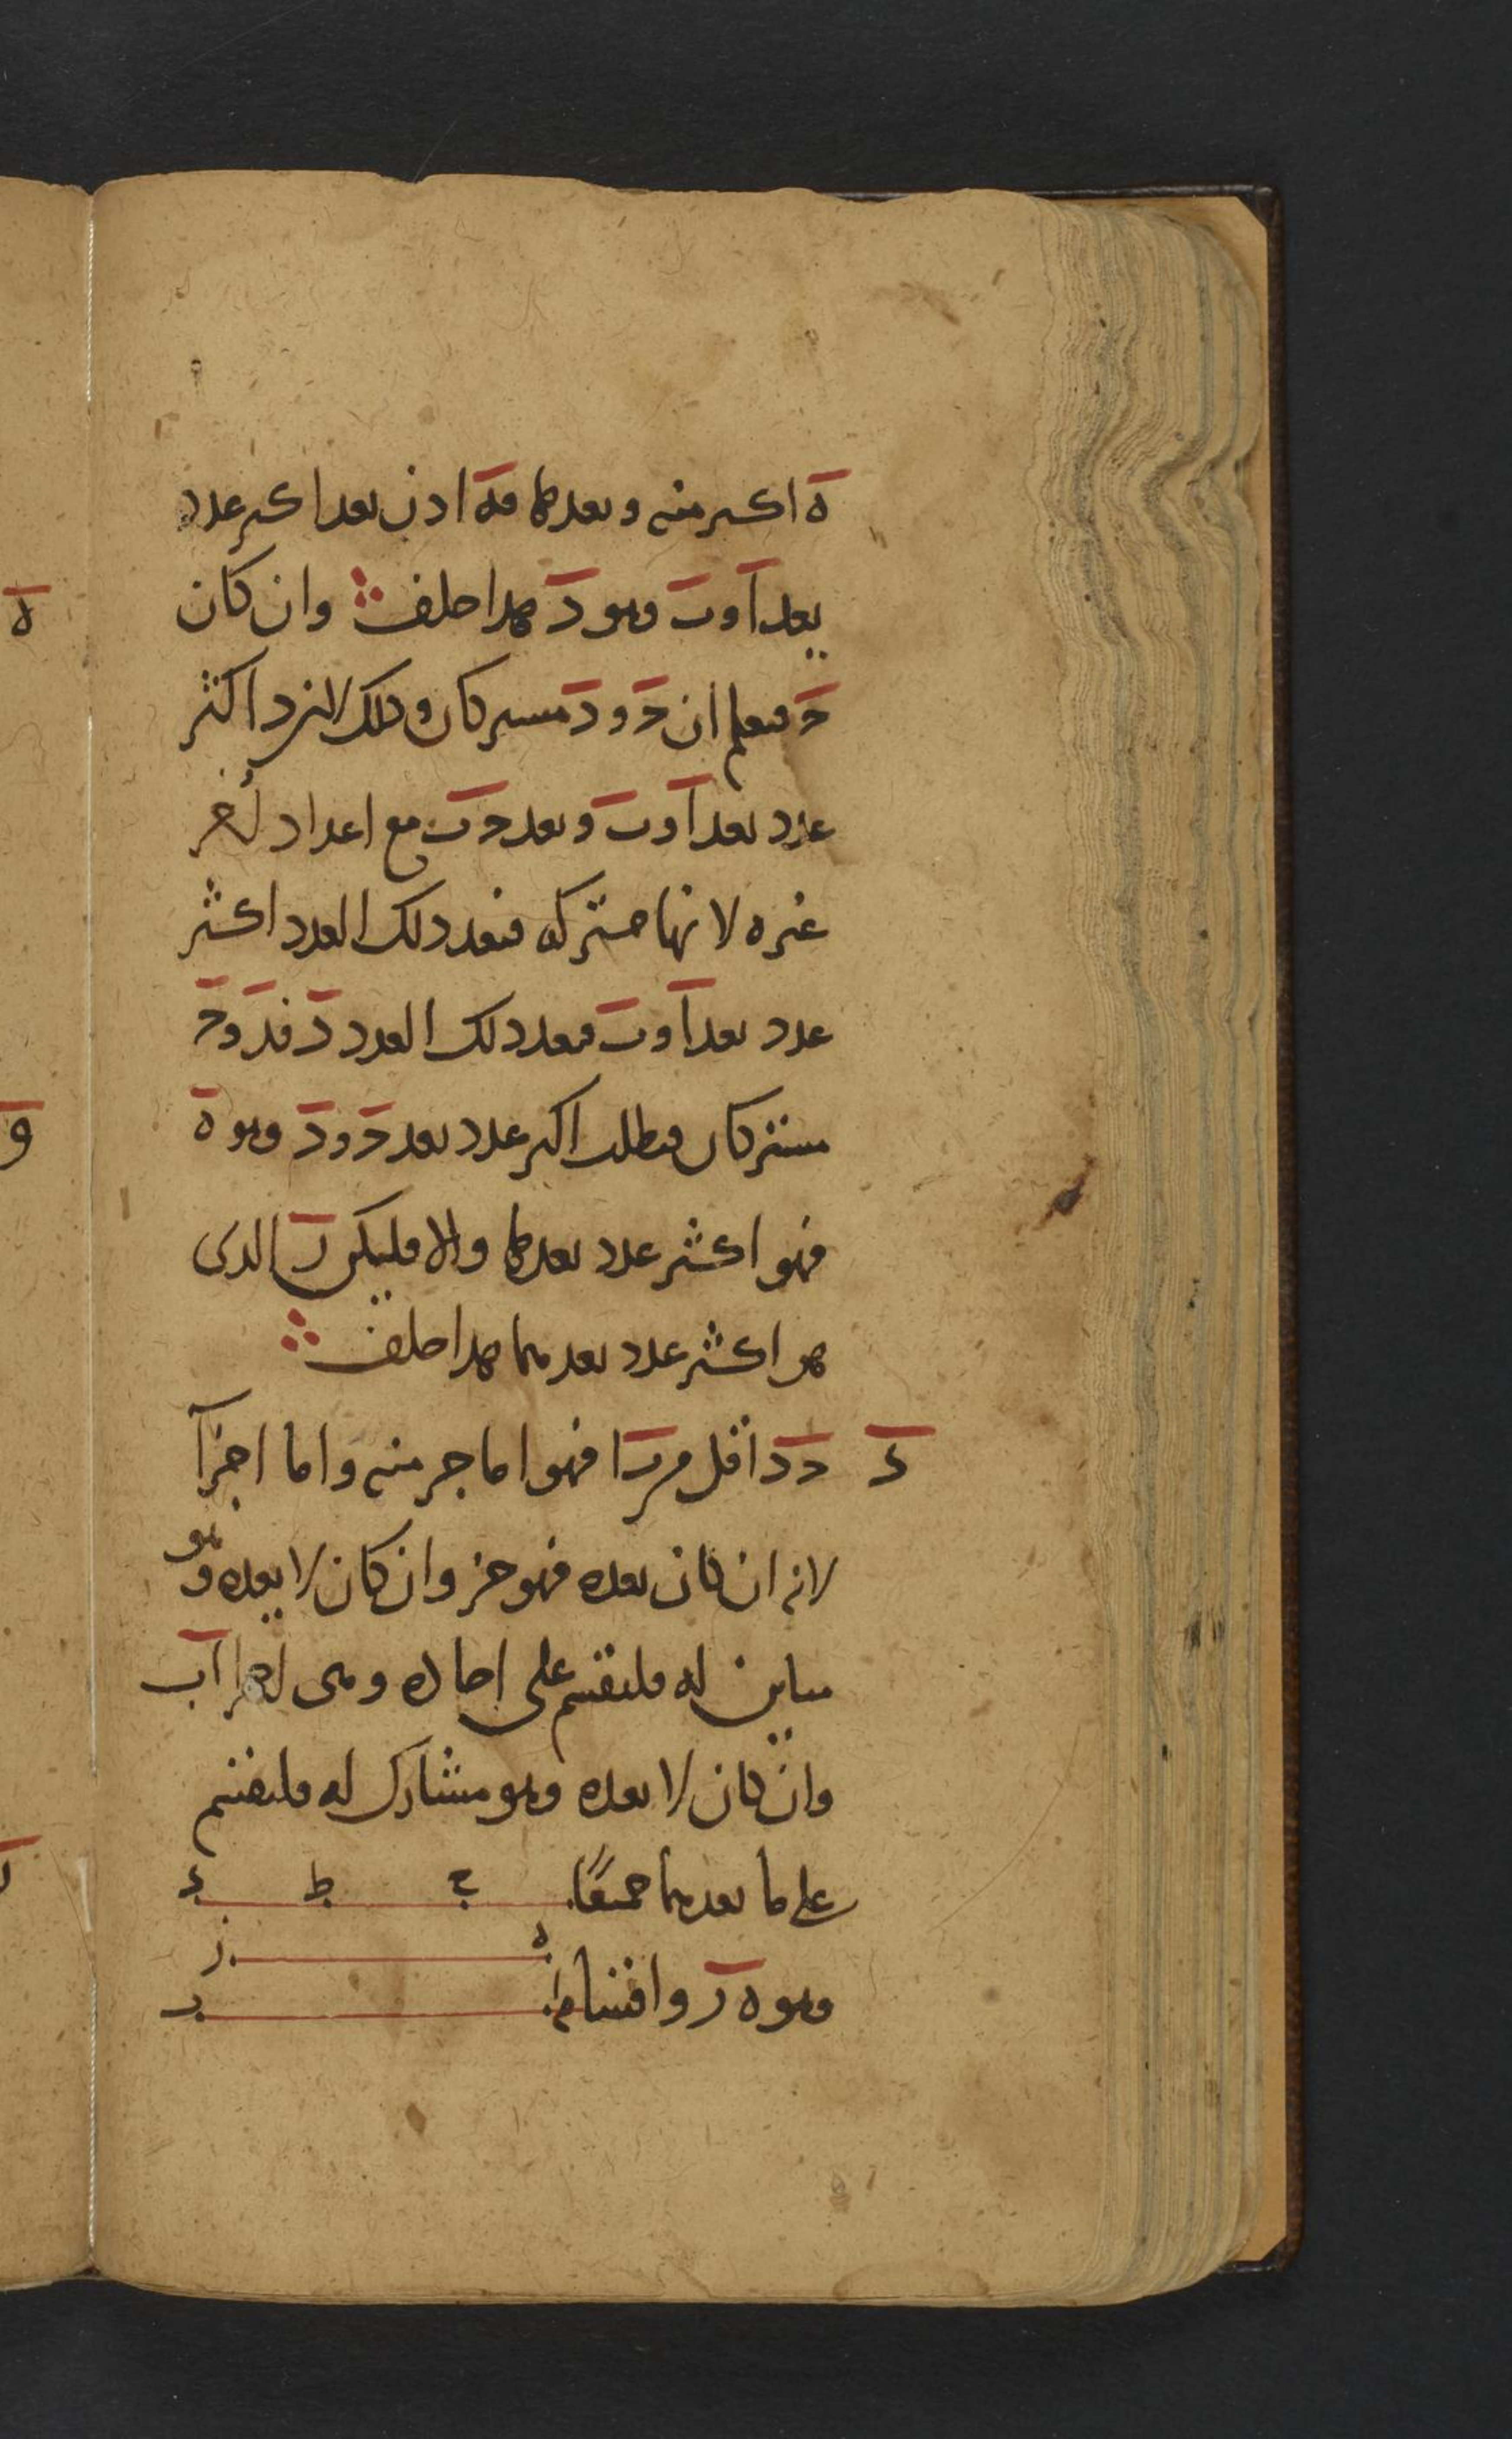 ه اكبر منه ويعدها فه اذن يعد اكبر عدد
يعد ا و ب وهو د هذا خلف وان كان
ح فنعلم ان ح و د مشتركان وذلك لانه د اكثر
عدد يعد ا و ب ويعد ح ب مع اعداد أخر
غيره لانها مشتركة فيعد ذلك العدد اكثر
عدد يعد ا و ب فيعد ذلك العدد د فد و ح
مشتركان فيطلب اكبر عدد يعد ح و د وهو ه
فهو اكثر عدد يعدها والا فليكن ر الذى
هو اكثر عدد يعدهما هذا خلف
د ح د اقل من ب ا فهو اما جز منه واما اجزآ
لانه ان كان يعده فهو جز وان كان لا يعده وهو
مباين له فلنقسم على احاده وهى اجزا ا ب
وان كان لا يعده وهو مشارك له فلنقسم
على ما يعدهما جميعًا
ح ط د
ه ز
وهو ه ر واقسام
ا ب
ه
و